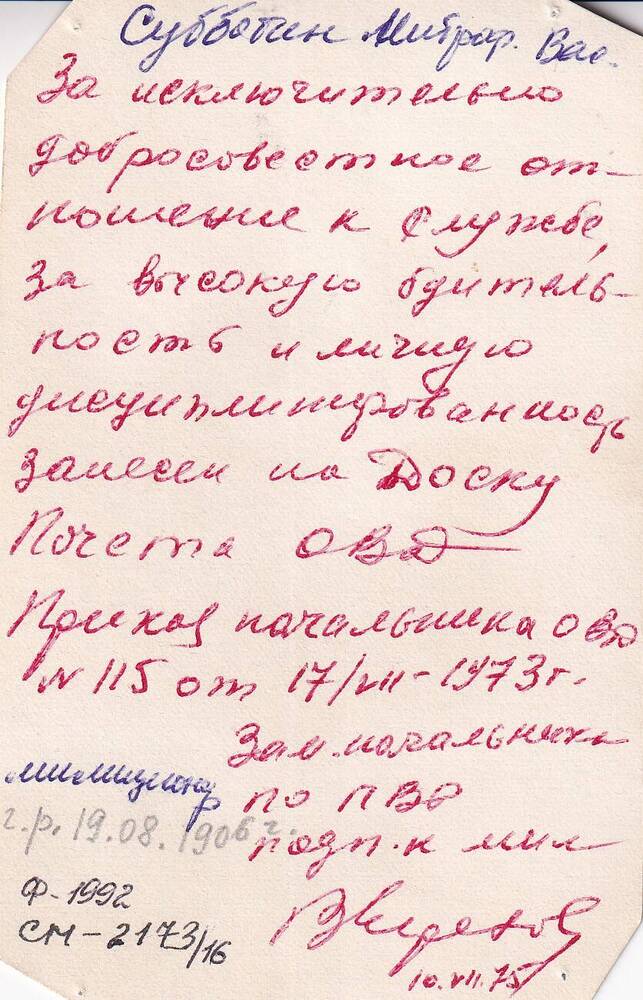 Субботин Митроф. Вас.
За исключительно
добросовестное от-
ношение к службе,
за высокую бдитель-
ность и личную
дисциплинированность
занесен на Доску
Почета ОВД
Приказ начальника ОВД
№ 115 от 17/VII-1973г.
Зам. начальника
по ПВР
подп.к мил
милиционер
г.р. 19.08.1906 г.
Ф-1992
СМ-2173/16
10.VII.75